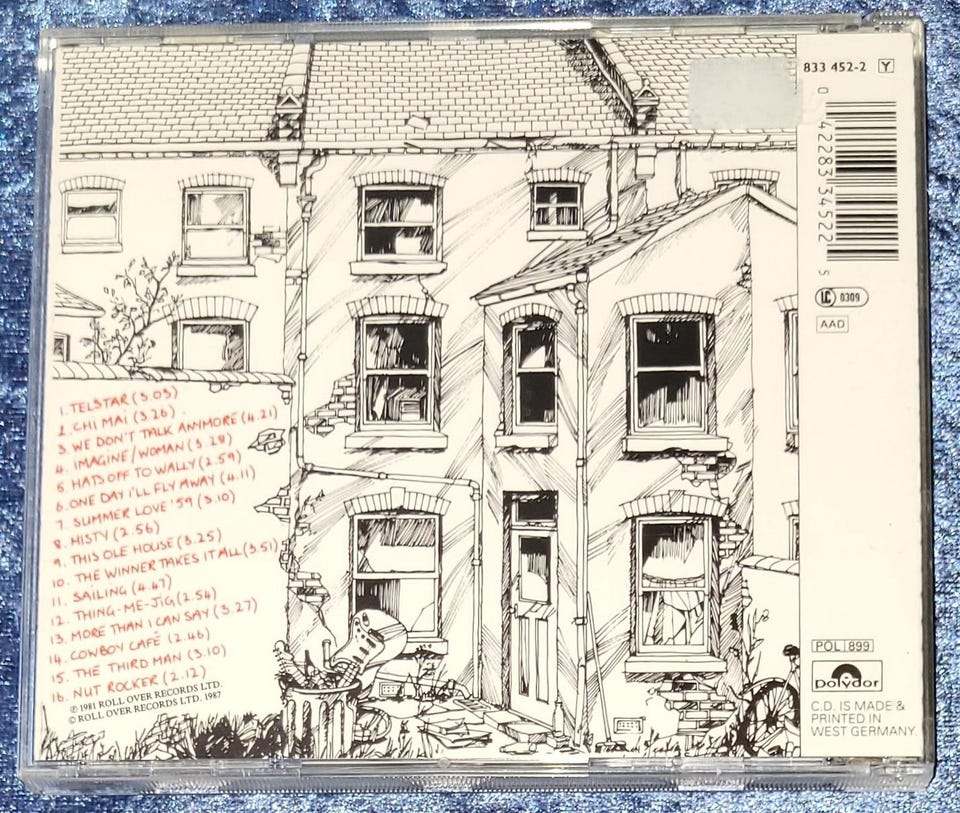 833 452-2 Y
0 42283 34522 5
LC 0309
AAD
1. TELSTAR (3.05)
2. CHI MAI (3.26)
3. WE DON'T TALK ANYMORE (4.21)
4. IMAGINE/WOMAN (3.28)
5. HATS OFF TO WALLY (2.59)
6. ONE DAY I'LL FLY AWAY (4.11)
7. SUMMER LOVE '59 (3.10)
8. MISTY (2.56)
9. THIS OLE HOUSE (3.25)
10. THE WINNER TAKES IT ALL (3.51)
11. SAILING (4.47)
12. THING-ME-JIG (2.54)
13. MORE THAN I CAN SAY (3.27)
14. COWBOY CAFÉ (2.46)
15. THE THIRD MAN (3.10)
16. NUT ROCKER (2.12)
℗ 1981 ROLL OVER RECORDS LTD.
© ROLL OVER RECORDS LTD. 1987
POL 899
Polydor
C.D. IS MADE &
PRINTED IN
WEST GERMANY.